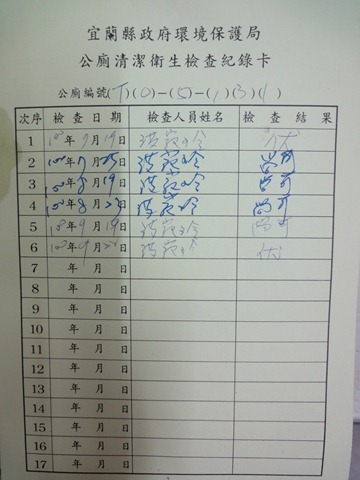 宜蘭縣政府環境保護局
公廁清潔衛生檢查紀錄卡
公廁編號(T)(0)-(5)-(1)(3)(1)
次序 檢查日期 檢查人員姓名 檢查結果
1 年7月19日 優
2 年7月日 尚可
3 年8月19日 尚可
4 年8月日 尚可
5 年9月19日 尚可
6 年9月日 優
7 年月日
8 年月日
9 年月日
10 年月日
11 年月日
12 年月日
13 年月日
14 年月日
15 年月日
16 年月日
17 年月日